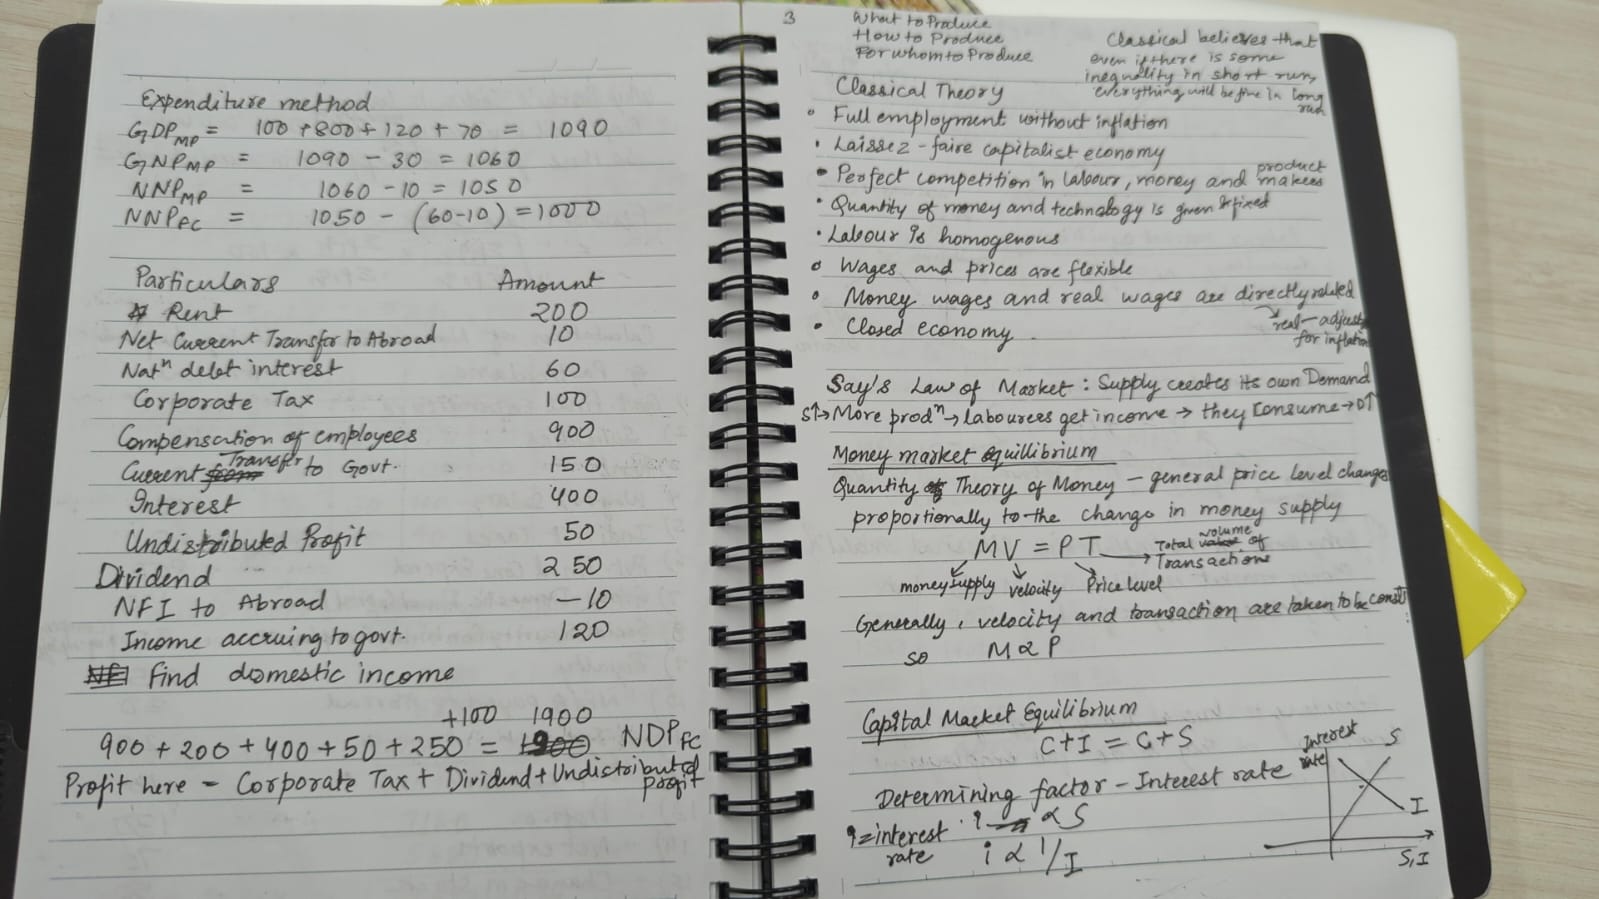 Expenditure method
GDPMP = 100 + 800 + 120 + 70 = 1090
GNPMP = 1090 - 30 = 1060
NNPMP = 1060 - 10 = 1050
NNPFC = 1050 - (60-10) = 1000
Particulars Amount
Rent 200
Net Current Transfer to Abroad 10
Natⁿ debt interest 60
Corporate Tax 100
Compensation of employees 900
Current Transfer to Govt. 150
Interest 400
Undistributed Profit 50
Dividend 250
NFI to Abroad -10
Income accruing to govt. 120
Find domestic income
+100 1900
900 + 200 + 400 + 50 + 250 = 1900 NDPFC
Profit here - Corporate Tax + Dividend + Undistributed
profit
3
What to Produce
How to Produce
For whom to Produce
Classical believes that
even if there is some
inequality in short run,
everything will be fine in long
run
Classical Theory
• Full employment without inflation
• Laissez-faire capitalist economy
• Perfect competition in labour, money and product
• Quantity of money and technology is given & fixed
• Labour is homogenous
• Wages and prices are flexible
• Money wages and real wages are directly related
→ real - adjusts
for inflation
• Closed economy.
Say's Law of Market : Supply creates its own Demand
S↑→ More prodⁿ → Labourers get income → they consume → D↑
Money market equillibrium
Quantity Theory of Money - general price level changes
proportionally to the change in money supply
MV = PT → Total volume of
Transactions
money supply velocity Price level
Generally, velocity and transaction are taken to be const
so M ∝ P
Capital Market Equilibrium
C+I = C+S
Determining factor - Interest rate
i = interest
rate
i ∝ S
i ∝ 1/I
Interest
rate
S
I
S, I